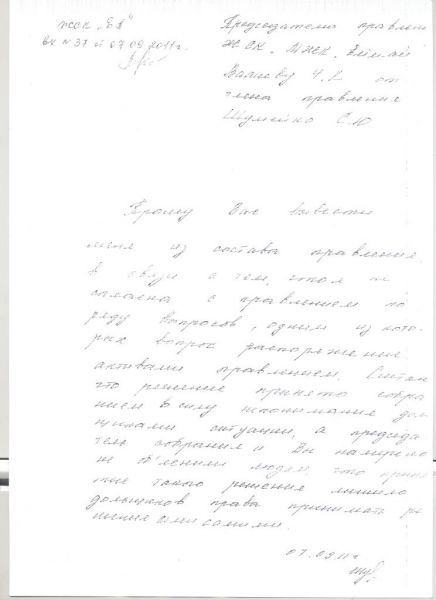 вх № 37 от 07.09.2011г.
Председателю правления
ЖСК
от
члена правления
Шумейко С.Ю
Прошу Вас вывести
меня из состава правления.
В связи с тем, что я не
согласна с правлением по
ряду вопросов, одним из кото-
рых вопрос распоряжение
активами правлением. Считаю
что решение принято собра
нием в силу непонимания дол
щиками ситуации, а председа
тель собрания и Вы намерено
не объяснили людям, что приня
тие такого решения лишило
дольщиков права принимать ре
шения самими.
07.09.11г